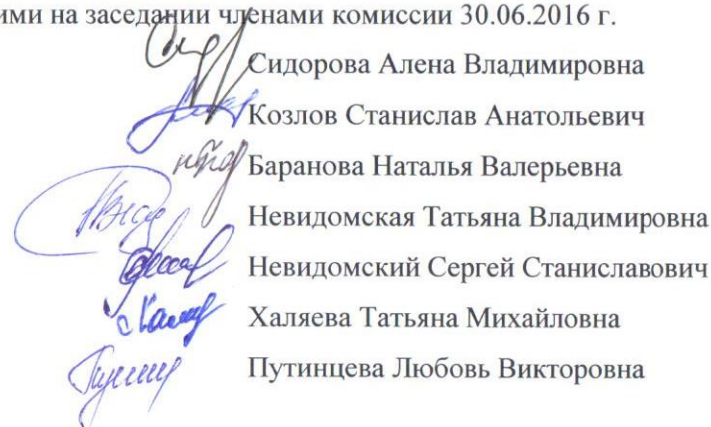 ими на заседании членами комиссии 30.06.2016 г.
Сидорова Алена Владимировна
Козлов Станислав Анатольевич
Баранова Наталья Валерьевна
Невидомская Татьяна Владимировна
Невидомский Сергей Станиславович
Халяева Татьяна Михайловна
Путинцева Любовь Викторовна